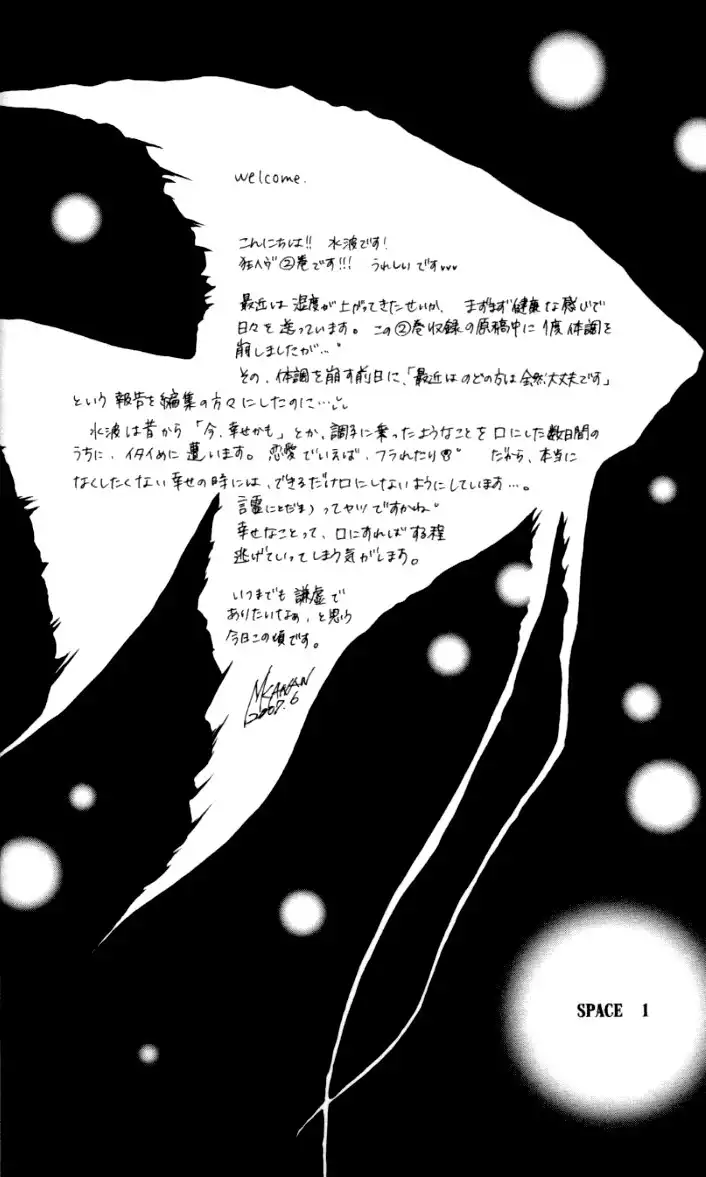 welcome.
こんにちは!! 水波です!
狂ヘヴ②巻です!!! うれしいです
最近は湿度が上がってきたせいか、まずまず健康な感じで
日々を送っています。この②巻収録の原稿中に1度体調を
崩しましたが…。
その、体調を崩す前日に、「最近はのどの方は全然大丈夫です」
という報告を編集の方々にしたのに…
水波は昔から「今、幸せかも」とか、調子に乗ったようなことを口にした数日間の
うちに、イタイめに遭います。恋愛でいえば、フラれたり だから、本当に
なくしたくない幸せの時には、できるだけ口にしないようにしています…。
言霊(ことだま)ってヤツですかね。
幸せなことって、口にすればする程
逃げていってしまう気がします。
いつまでも謙虚で
ありたいなぁ、と思う
今日この頃です。
SPACE 1